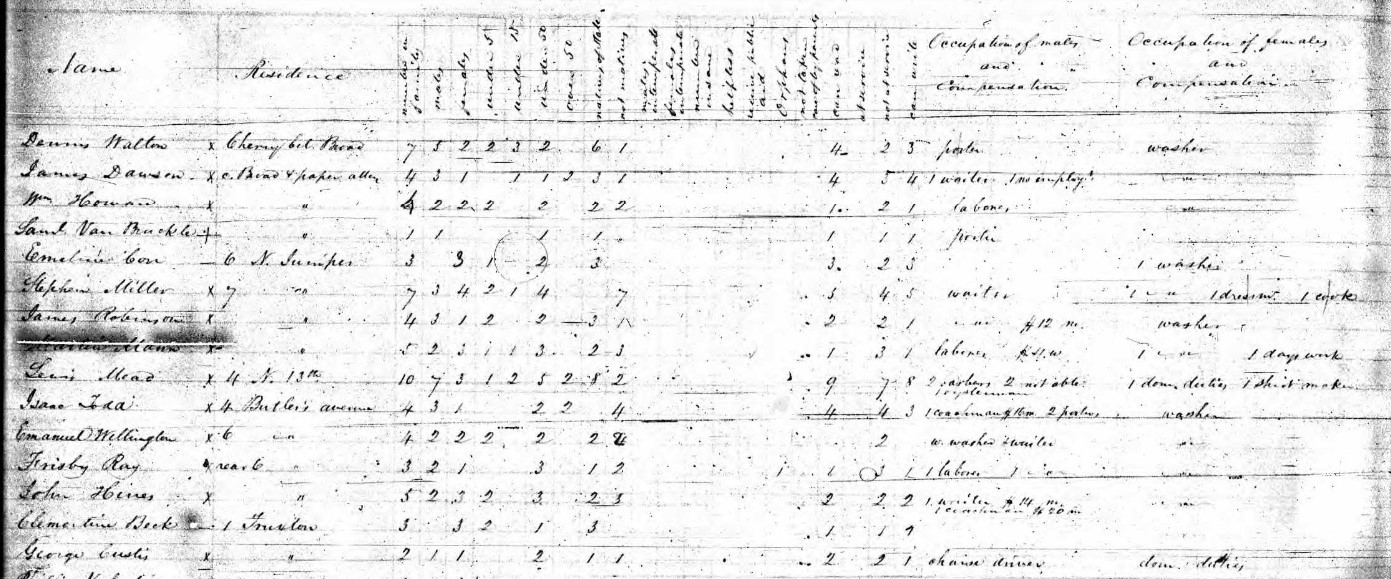 Name Residence number in family males females under 5 under 15 under 50 over 50 natives of State not natives males intemperate females intemperate number insane helpless receive public aid Orphans can read at service not at service can write Occupation of males and Compensation Occupation of females and Compensation
Dennis Walton x Cherry bel Broad 7 5 2 2 3 2 6 1 4 2 3 porter washer
James Dawson x c. Broad & paper alley 4 3 1 1 1 2 3 1 4 3 4 1 waiter 1 no employt "
Wm Howard x " 4 2 2 2 2 2 2 1 2 1 laborer "
Saml Van Brackle " 1 1 1 1 1 1 1 porter
Emeline 6 N. Juniper 3 3 1 2 3 3 2 3 1 washer
Stephen Miller x 7 " 7 3 4 2 1 4 7 5 4 5 waiter 1 " 1 dressm. 1 cook
James Robinson x " 4 3 1 2 2 3 1 2 2 1 " $12 m. washer
Mann x " 5 2 3 1 1 3 2 3 1 3 1 laborer $4 w 1 " 1 days work
Lewis Mead x 4 N. 13th 10 7 3 1 2 5 2 8 2 9 7 8 2 barbers 2 not able 1 oysterman 1 dom. duties 1 shirt maker
Isaac x 4 Butler's avenue 4 3 1 2 2 4 4 4 3 1 coachman $16 m. 2 porters washer
Emanuel Wellington x 6 " 4 2 2 2 2 2 2 w. washer & waiter "
Frisby Ray x rear 6 " 3 2 1 3 1 2 1 1 3 1 1 laborer 1 " "
John Hines x " 5 2 3 2 3 2 3 2 2 2 1 waiter $14 m 1 coachman $20 m "
Clementine Beck 1 Truxton 3 3 2 1 3 1 1
George Custis x " 2 1 1 2 1 1 2 2 1 chaise driver dom. duties